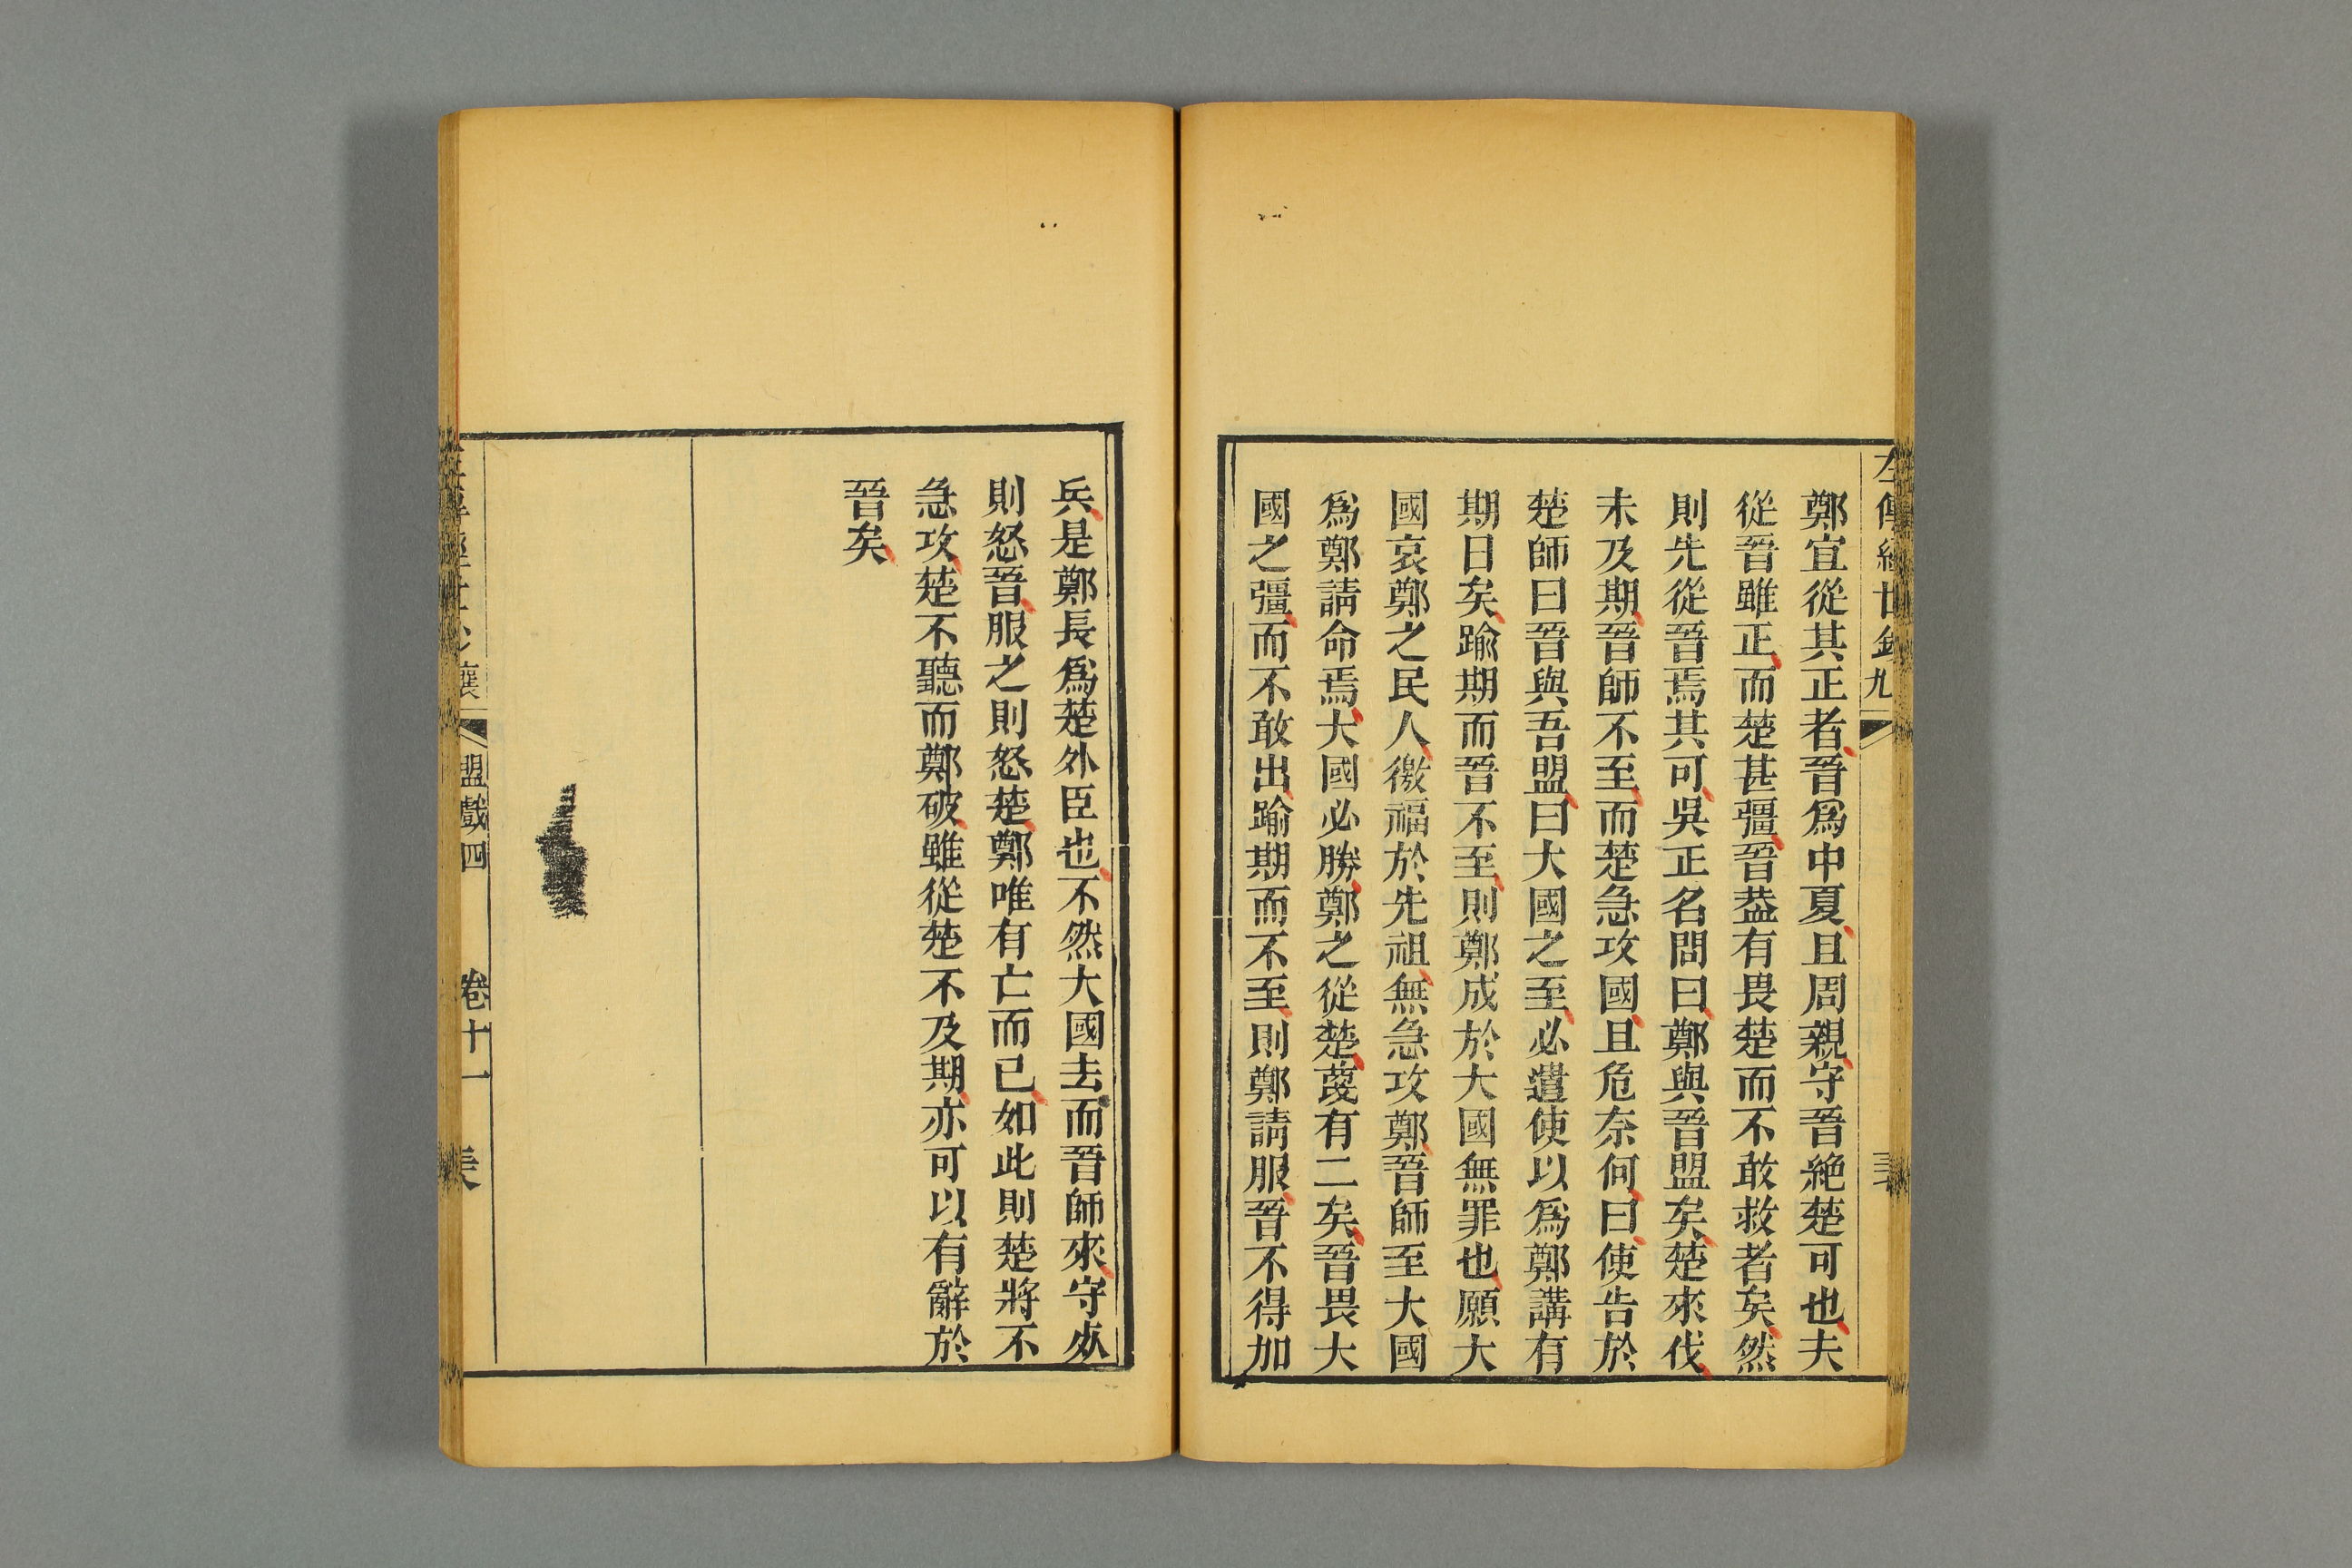 鄭宜從其正者晉爲中夏且周親守晉絶楚可也夫
從晉雖正而楚甚彊晉葢有畏楚而不敢救者矣然
則先從晉焉其可吳正名問曰鄭與晉盟矣楚來伐
未及期晉師不至而楚急攻國且危奈何曰使告於
楚師曰晉與吾盟曰大國之至必遣使以爲鄭講有
期日矣踰期而晉不至則鄭成於大國無罪也願大
國哀鄭之民人徼福於先祖無急攻鄭晉師至大國
爲鄭請命焉大國必勝鄭之從楚蔑有二矣晉畏大
國之彊而不敢出踰期而不至則鄭請服晉不得加
兵是鄭長爲楚外臣也不然大國去而晉師來守必
則怒晉服之則怒楚鄭唯有亡而已如此則楚將不
急攻楚不聽而鄭破雖從楚不及期亦可以有辭於
晉矣
襄 盟戲四 卷十一